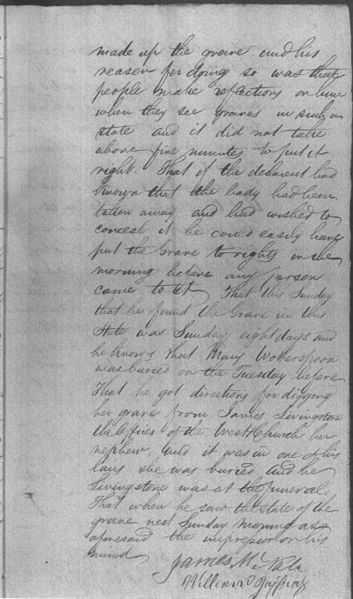 made up the grave and his
reason for doing so was that
people make reflections on him
when they see graves in such a
state and it did not take
above five minutes to put it
right. That if the declarant had
known that the body had been
taken away and had wished to
conceal it he could easily have
put the Grave to rights in the
morning before any person
came to it. That the Sunday
that he found the Grave in this
State was Sunday eight days and
he knows that Mary Wotherspoon
was buried on the Tuesday before
That he got directions for digging
her grave from James Livingstone
the Officer of the West Church her
nephew, and it was in one of his
lairs she was buried, and he
Livingstone was at the funeral.
That when he saw the state of the
grave next Sunday morning as
aforesaid the impression on his
mind
James Mc
William